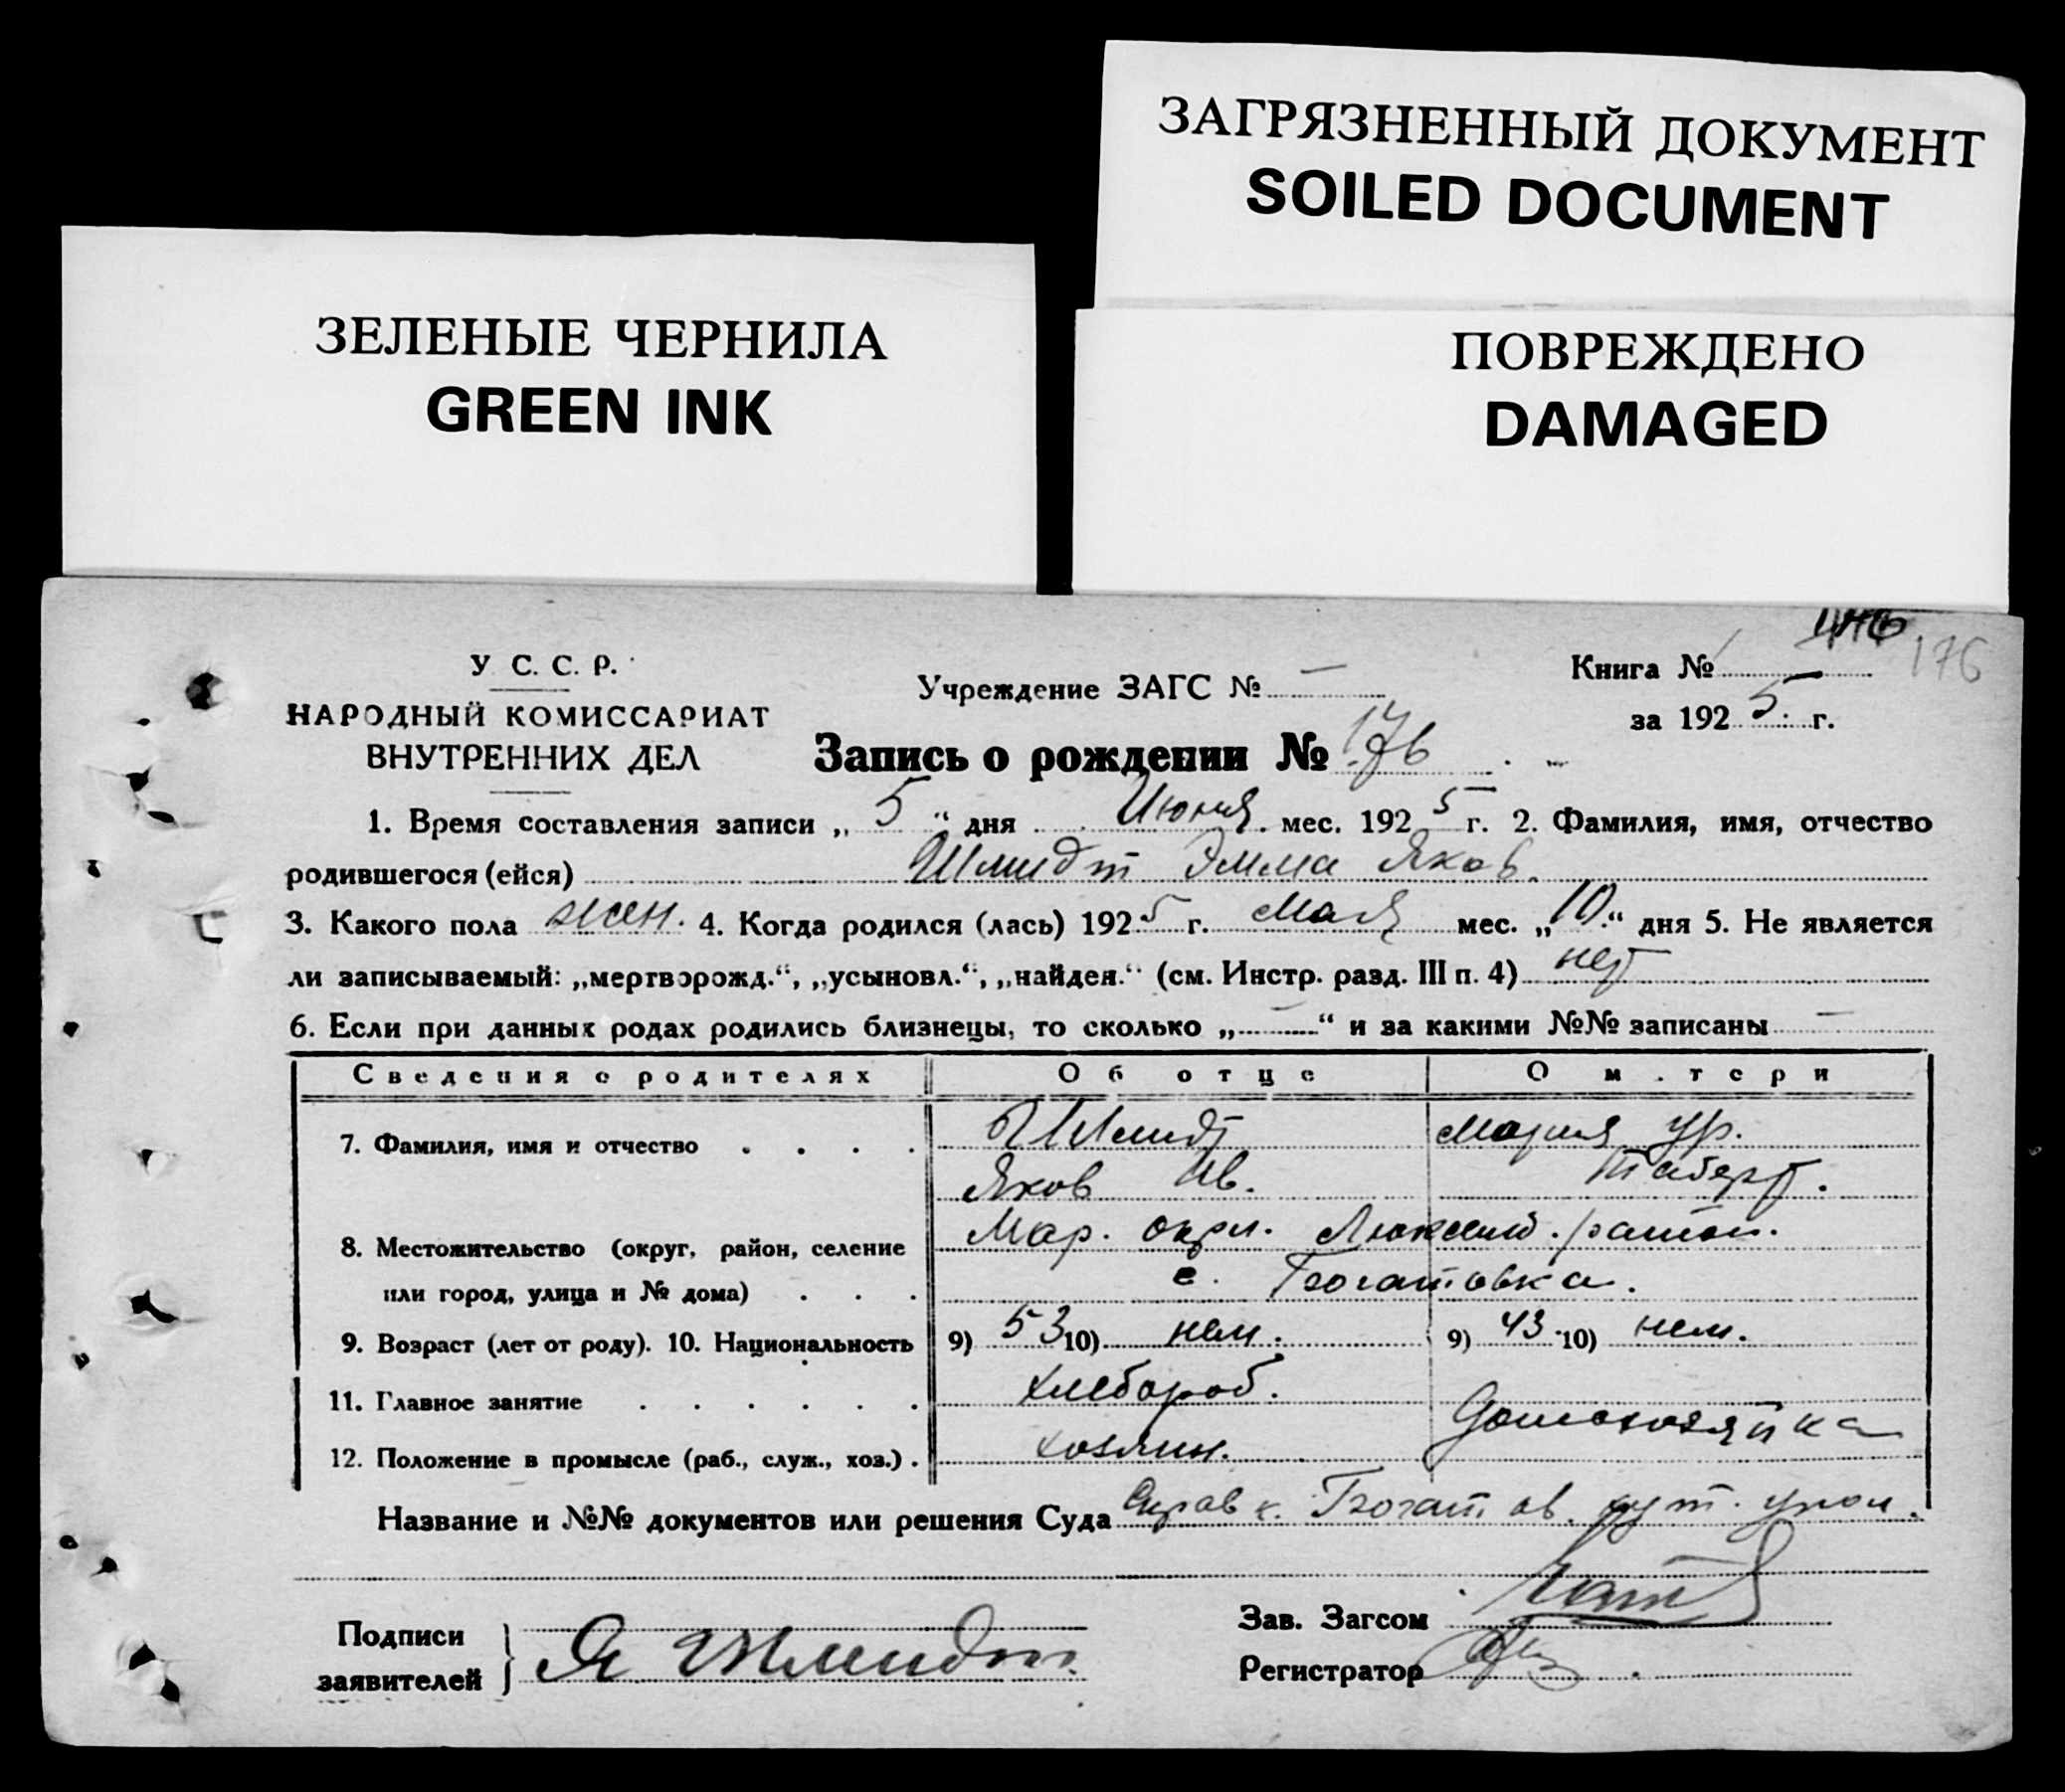 ЗАГРЯЗНЕННЫЙ ДОКУМЕНТ
SOILED DOCUMENT
ЗЕЛЕНЫЕ ЧЕРНИЛА
GREEN INK
ПОВРЕЖДЕНО
DAMAGED
176
У. С. С. Р.
НАРОДНЫЙ КОМИССАРИАТ
ВНУТРЕННИХ ДЕЛ
Учреждение ЗАГС № —
Книга №
за 1925 г.
Запись о рождении № 176
1. Время составления записи „5“ дня Июня мес. 1925 г. 2. Фамилия, имя, отчество
родившегося (ейся) Шмидт Эмма Яков.
3. Какого пола жен. 4. Когда родился (лась) 1925 г. Мая мес. „10.“ дня 5. Не является
ли записываемый: „мертворожд.“, „усыновл.“, „найден.“ (см. Инстр. разд. III п. 4) нет
6. Если при данных родах родились близнецы, то сколько „—“ и за какими №№ записаны —
Сведения о родителях Об отце О м.тери
7. Фамилия, имя и отчество . . . . Шмидт Мария ур.
Яков Ив. Таберт.
8. Местожительство (округ, район, селение Мар. окр. Люксемб. район.
или город, улица и № дома) . . . с. Богатовка.
9. Возраст (лет от роду). 10. Национальность 9) 53 10) нем. 9) 43 10) нем.
11. Главное занятие . . . . . . хлебороб.
12. Положение в промысле (раб., служ., хоз.) . хозяин. Домохозяйка
Название и №№ документов или решения Суда Справк. Богатов. хут. упол.
Подписи
заявителей } Я Шмидт
Зав. Загсом
Регистратор